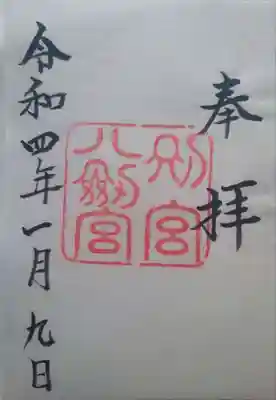 奉拝
別宮
八剱宮
令和四年一月九日